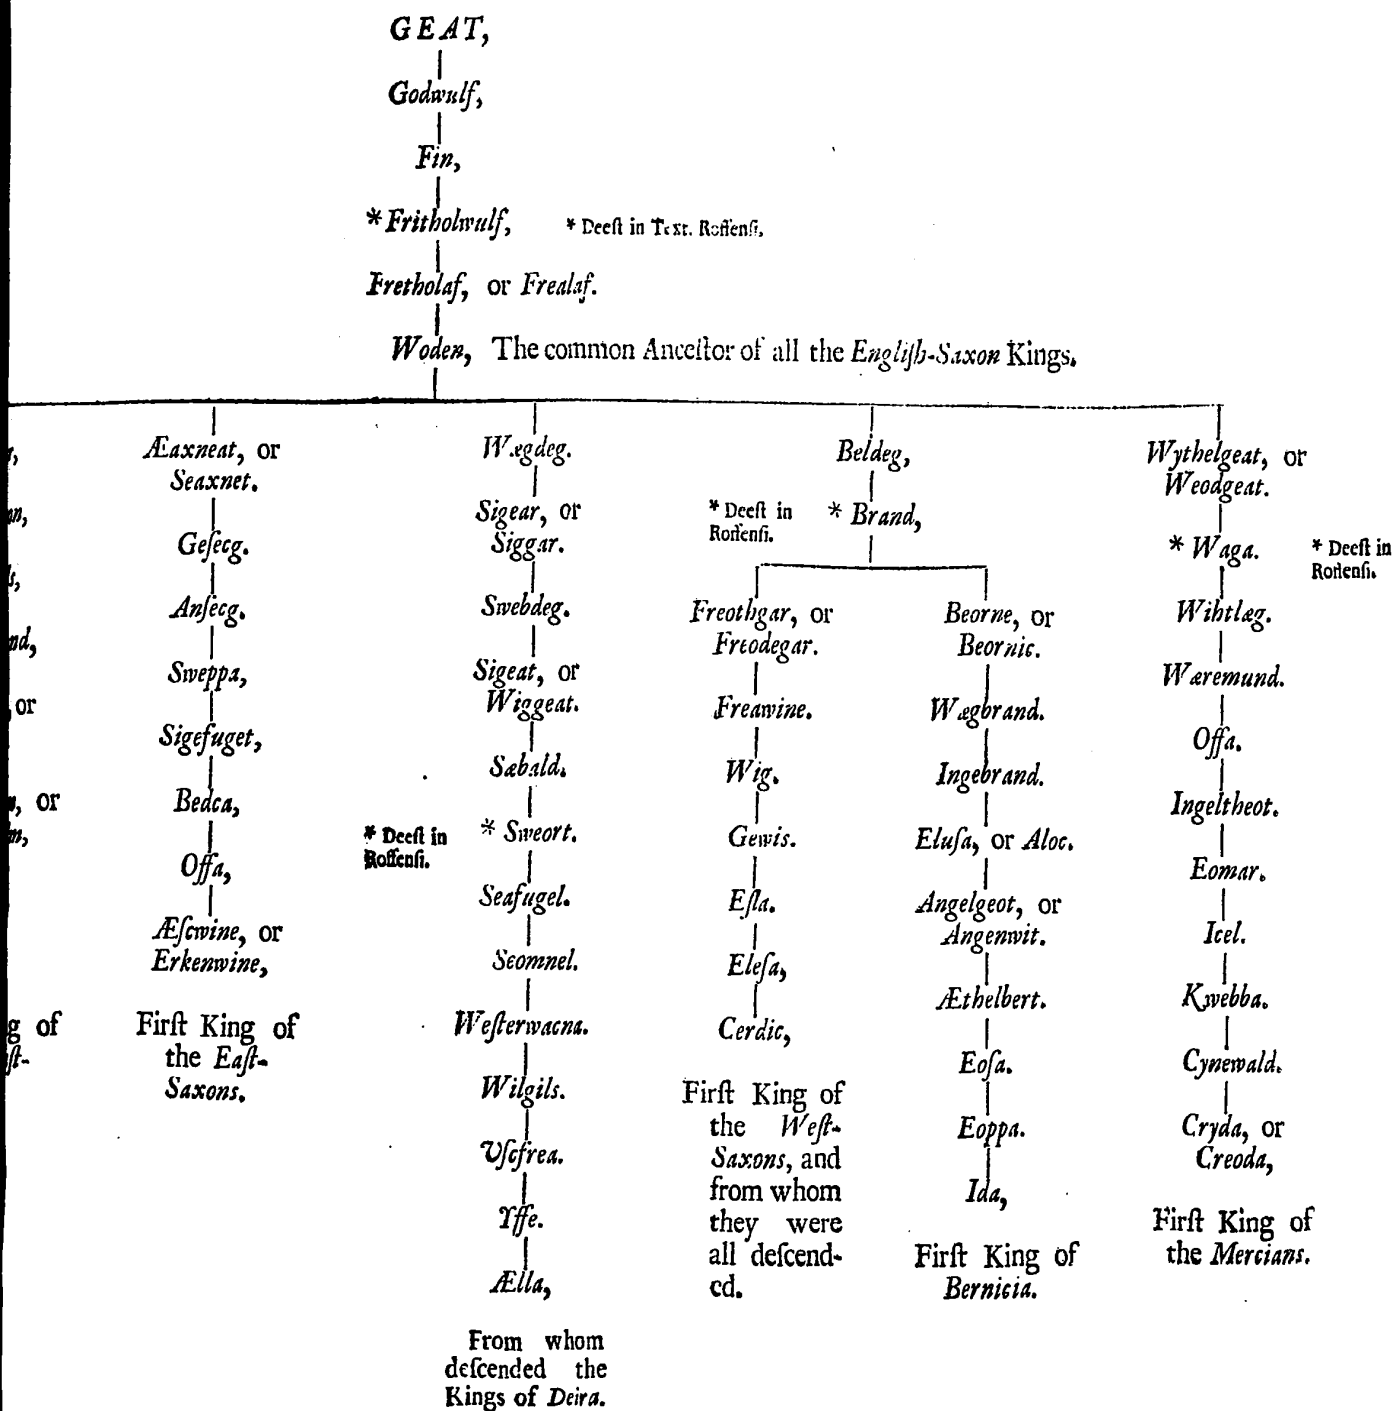 GEAT,
Godwulf,
Fin,
*Fritholwulf, * Deeſt in Text. Roffenſi,
Fretholaf, or Frealaf.
Woden, The common Anceſtor of all the Engliſh-Saxon Kings.
Æaxneat, or
Seaxnet.
Geſecg.
Anſecg.
Sweppa,
Sigefuget,
Bedca,
Offa,
Æſcwine, or
Erkenwine,
Firſt King of
the Eaſt-
Saxons.
Wægdeg.
Sigear, or
Siggar.
Swebdeg.
Sigeat, or
Wiggeat.
Sæbald.
* Deeſt in
Roffenſi.
* Sweort.
Seafugel.
Seomnel.
Weſterwacna.
Wilgils.
Uſcfrea.
Yffe.
Ælla,
From whom
deſcended the
Kings of Deira.
Beldeg,
* Deeſt in
Roffenſi.
* Brand,
Freothgar, or
Freodegar.
Freawine.
Wig.
Gewis.
Eſla.
Eleſa,
Cerdic,
Firſt King of
the Weſt-
Saxons, and
from whom
they were
all deſcend-
ed.
Beorne, or
Beornic.
Wægbrand.
Ingebrand.
Eluſa, or Aloc.
Angelgeot, or
Angenwit.
Æthelbert.
Eoſa.
Eoppa.
Ida,
Firſt King of
Bernicia.
Wythelgeat, or
Weodgeat.
* Waga.
* Deeſt in
Roffenſi.
Wihtlæg.
Wæremund.
Offa.
Ingeltheot.
Eomar.
Icel.
Kwebba.
Cynewald.
Cryda, or
Creoda,
Firſt King of
the Mercians.
or
or
of